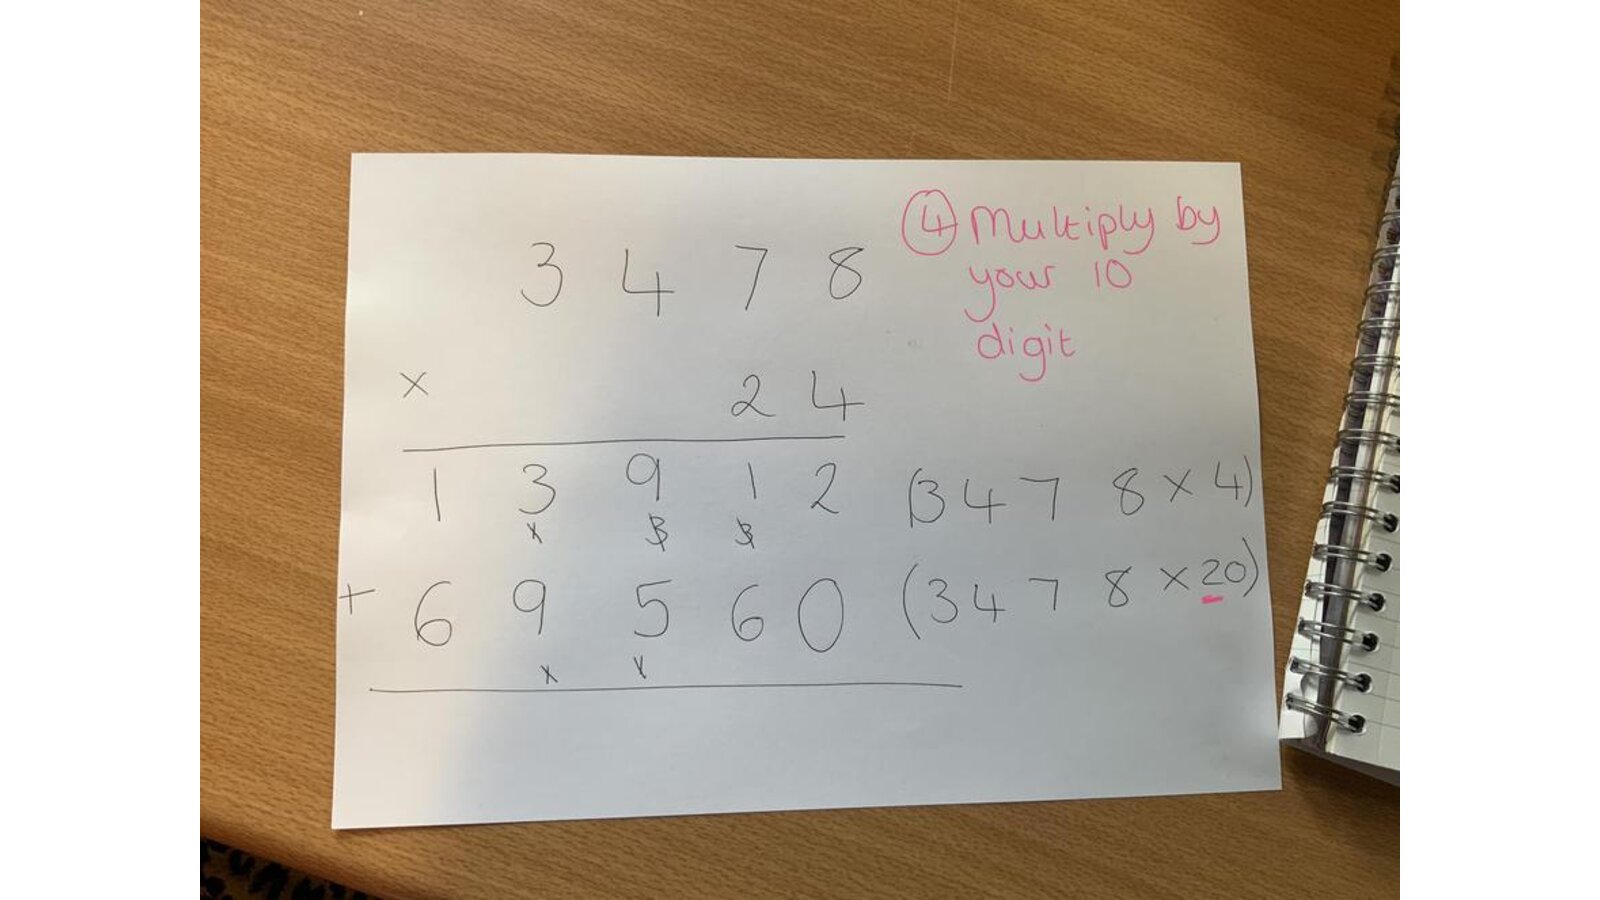 ④ Multiply by
your 10
digit
3 4 7 8
× 2 4
1 3 9 1 2 (3 4 7 8 × 4)
+ 6 9 5 6 0 (3 4 7 8 × 20)